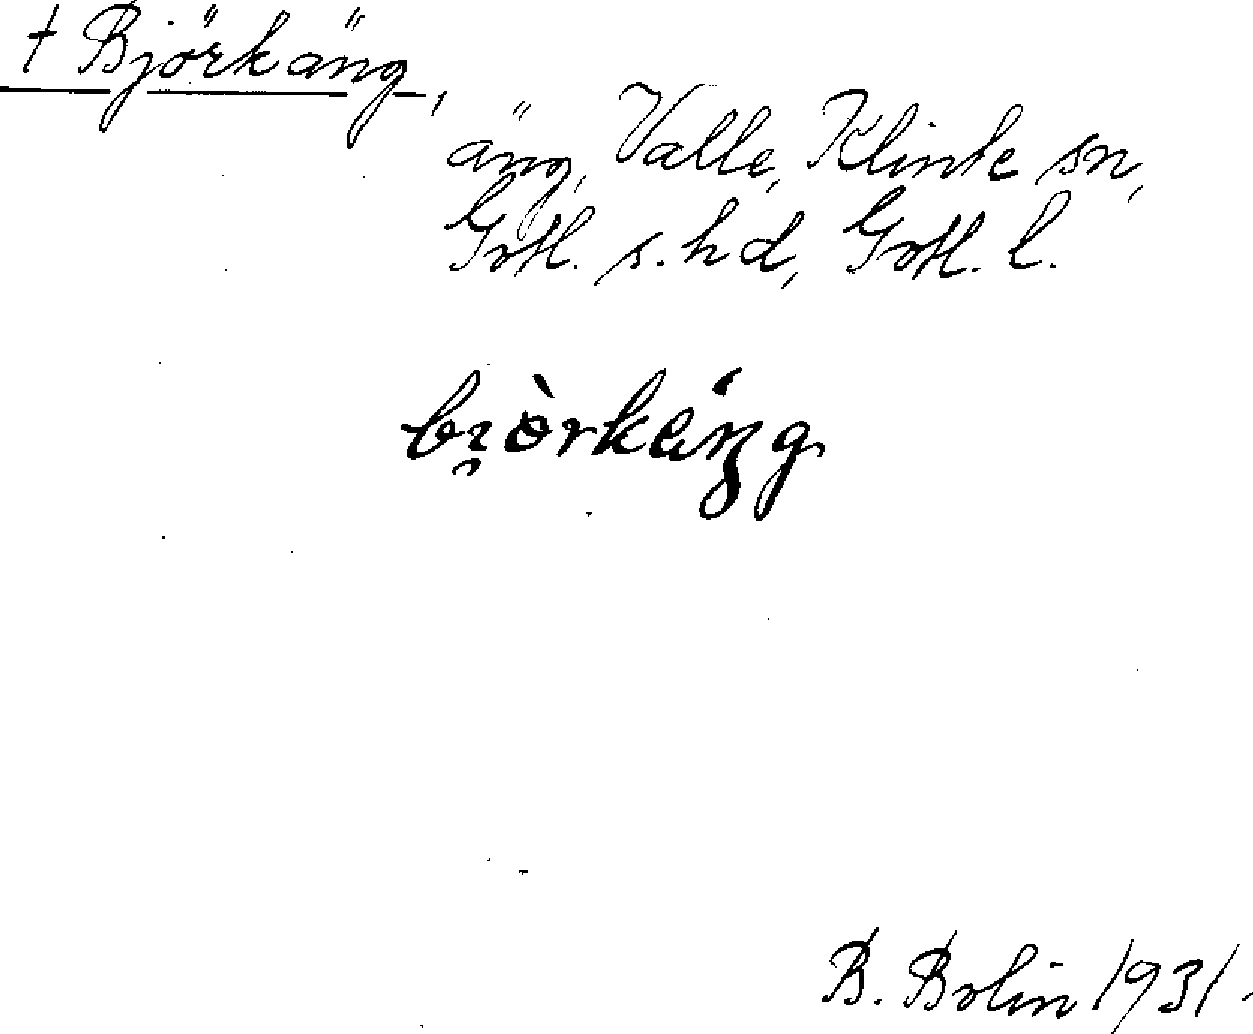 † Björkäng,
äng, Valle, Klinte sn,
Gotl. s. hd, Gotl. l.
bi̯òrkáŋg
B. Bolin 1931.